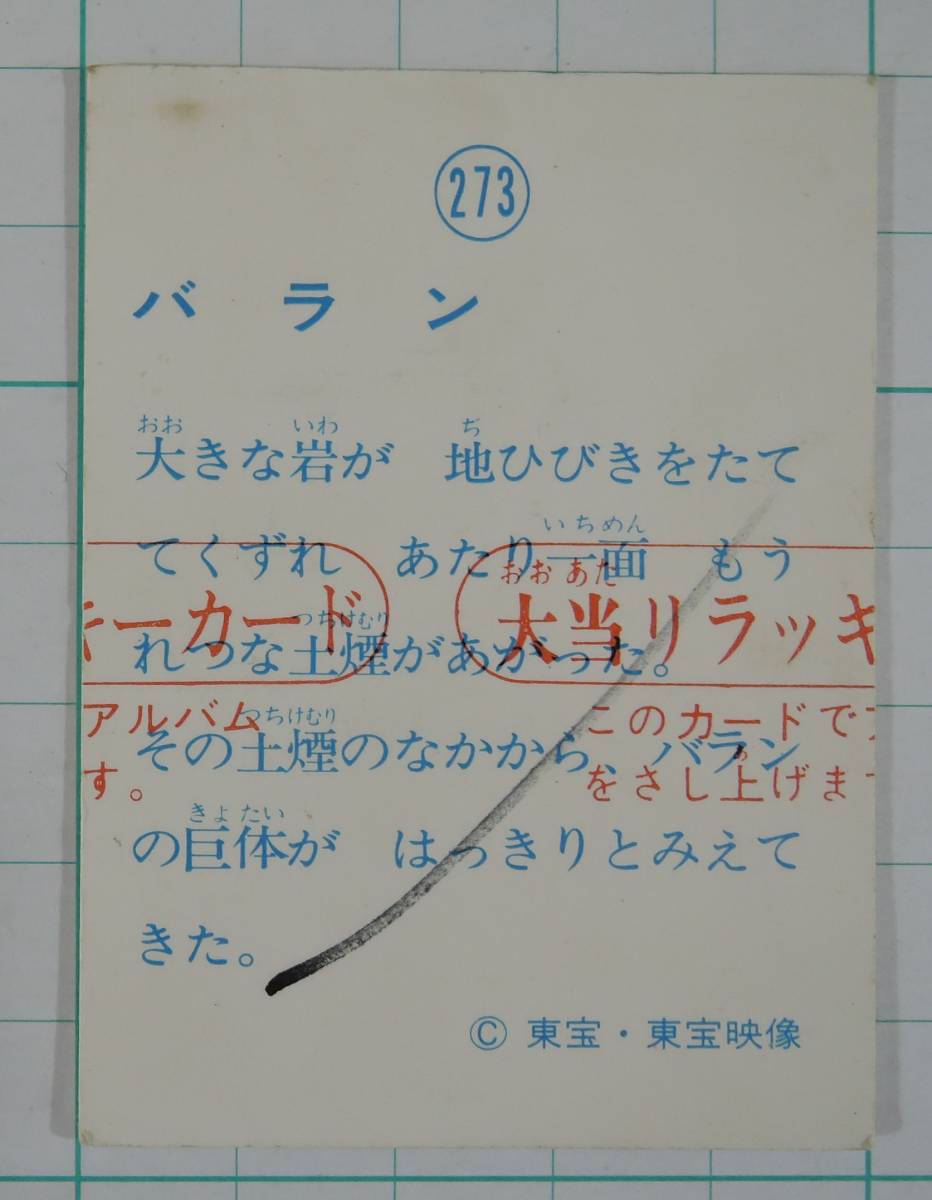 273
バラン
大きな岩が　地ひびきをたて
てくずれ　あたり一面　もう
れつな土煙があがった。
その土煙のなかから、バラン
の巨体が　はっきりとみえて
きた。
© 東宝・東宝映像
キーカード
大当りラッキ
アルバム
す。
このカードでア
をさし上げま